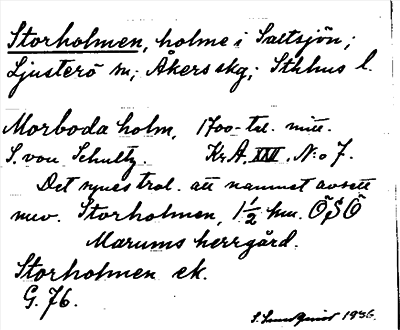 Storholmen, holme i Saltsjön;
Ljusterö sn; Åkers skg; Sthlms l.
Morboda holm, 1700-tal. mitt.
S. von Schultz. Kr.A. XXV. N:o 7.
Det synes trol. att namnet avsett
nuv. Storholmen, 1½ km. ÖSÖ
Marums herrgård.
Storholmen ek.
G. 76.
S. Lundqvist 1936.